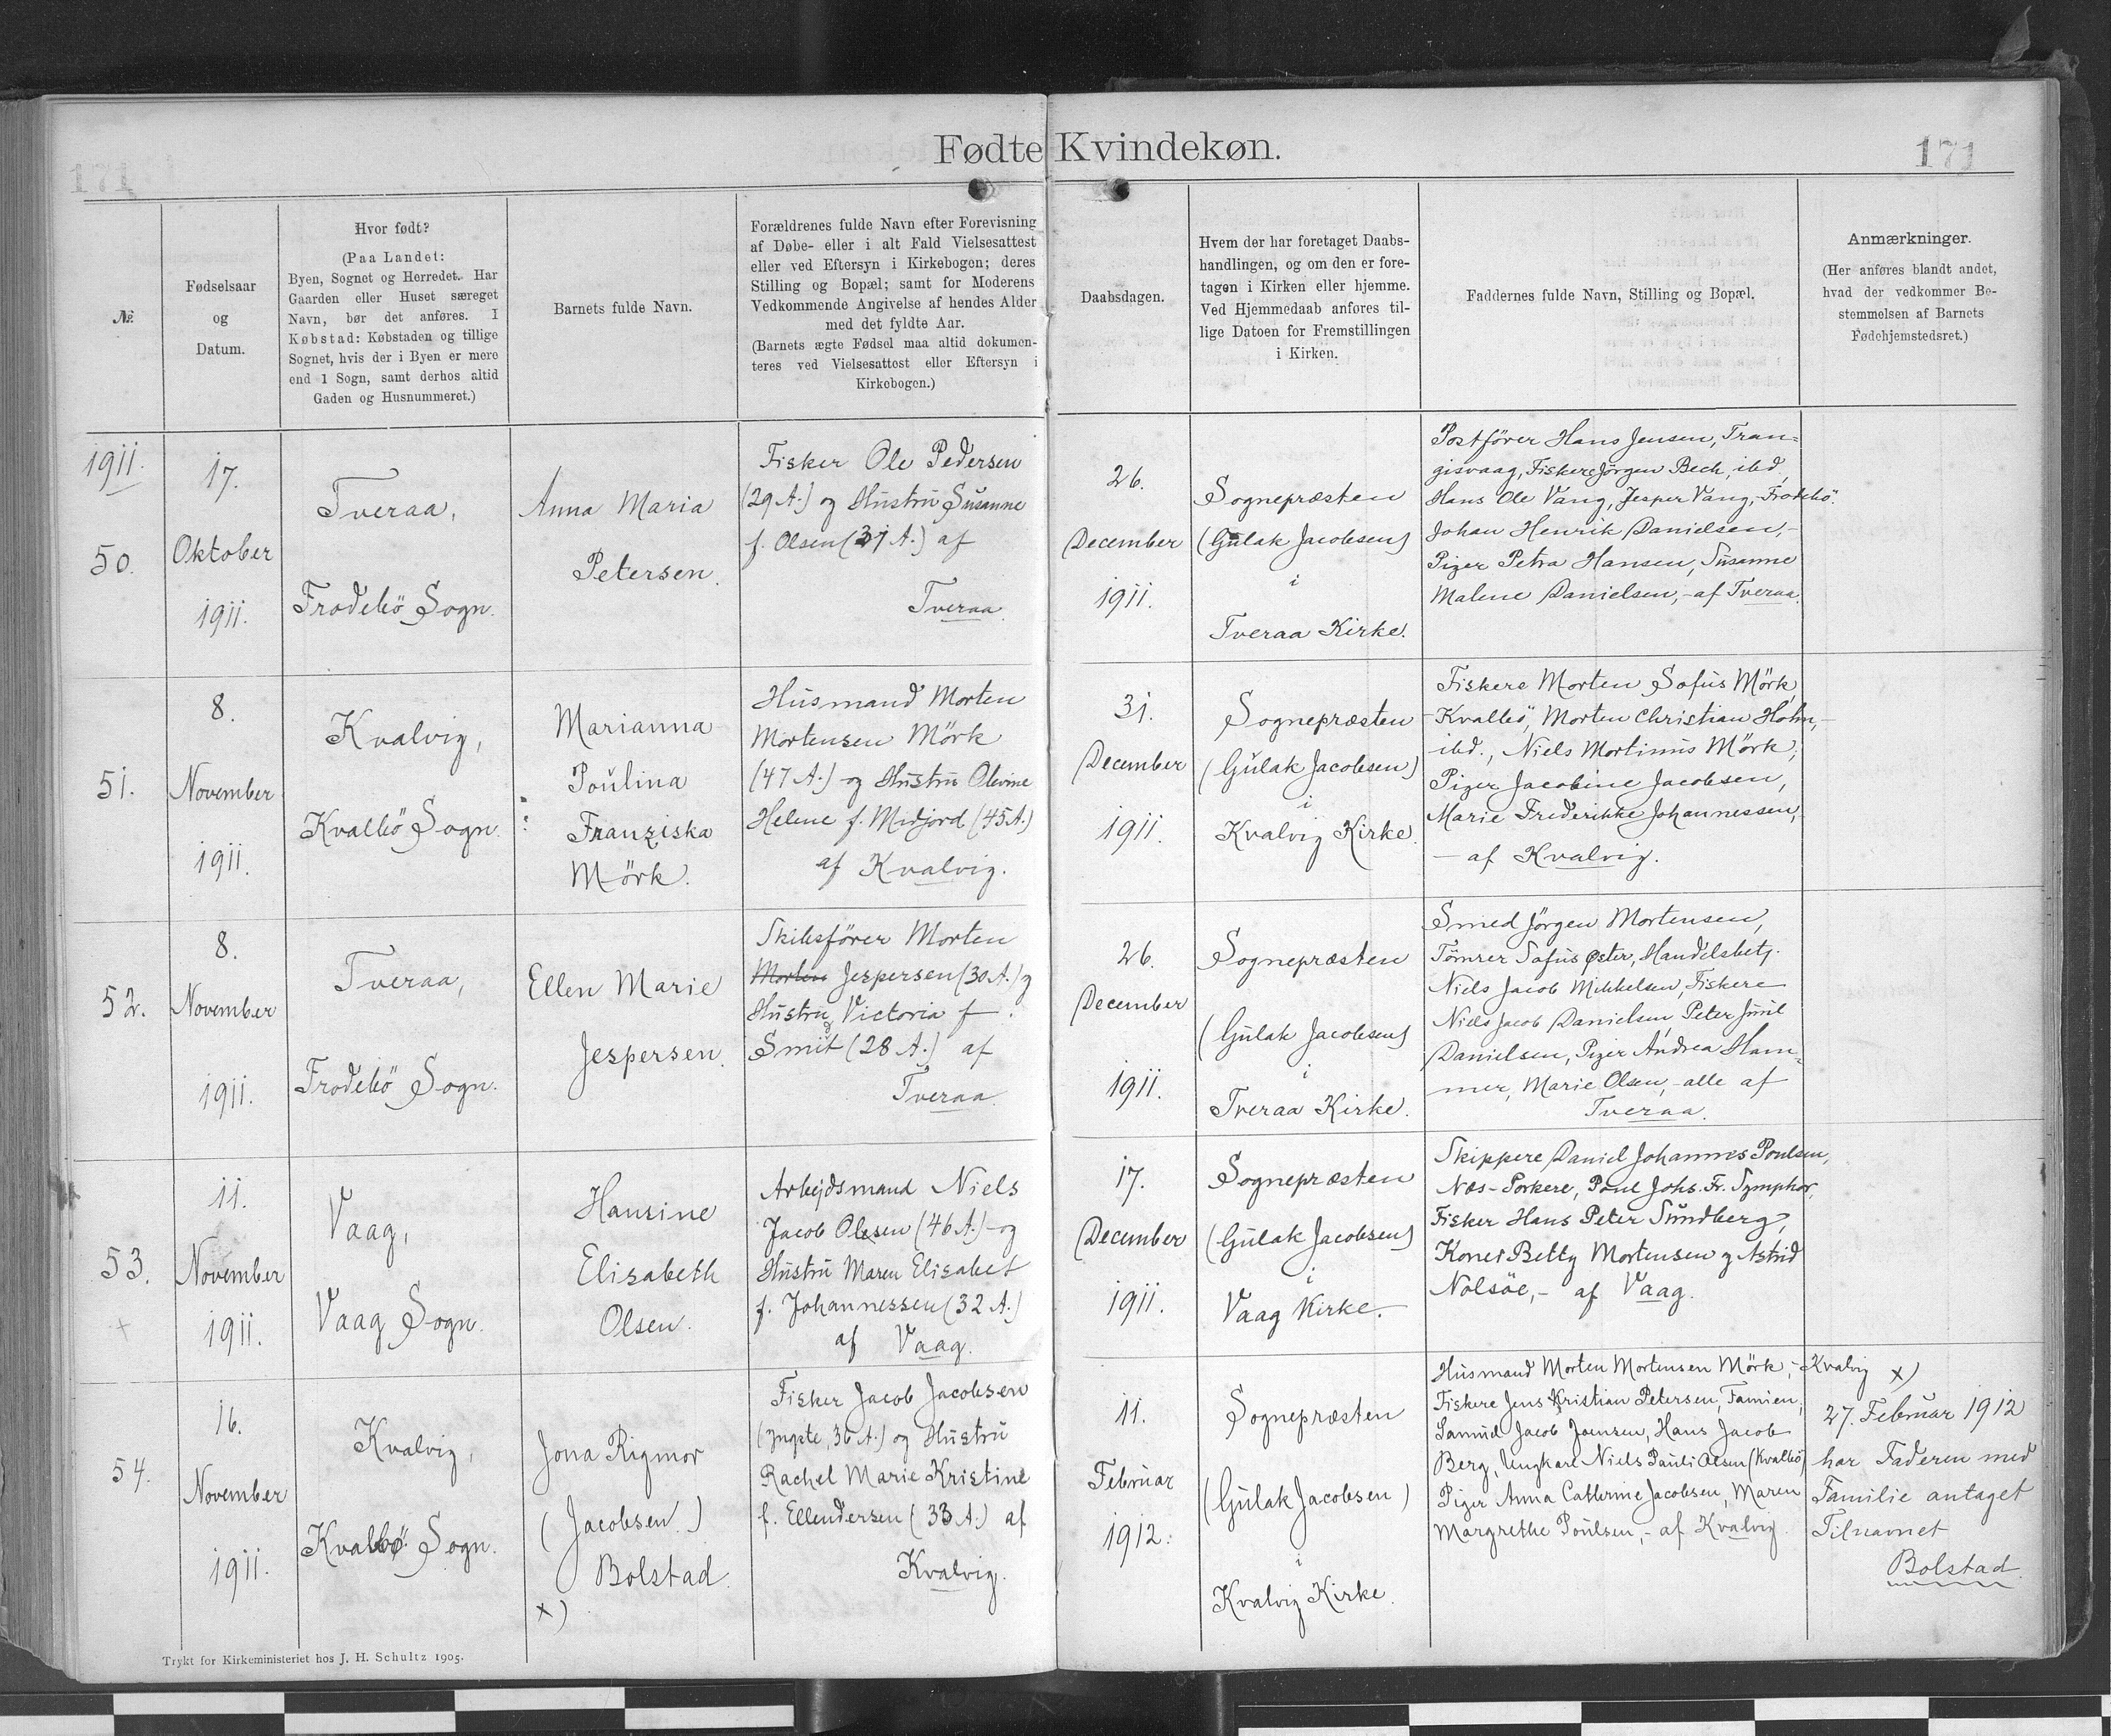 Fødte Kvindekøn.
171
171
№.
Fødselsaar
og
Datum.
Hvor født?
(Paa Landet:
Byen, Sognet og Herredet. Har
Gaarden eller Huset særeget
Navn, bør det anføres. I
Købstad: Købstaden og tillige
Sognet, hvis der i Byen er mere
end 1 Sogn, samt derhos altid
Gaden og Husnummeret.)
Barnets fulde Navn.
Forældrenes fulde Navn efter Forevisning
af Døbe- eller i alt Fald Vielsesattest
eller ved Eftersyn i Kirkebogen; deres
Stilling og Bopæl; samt for Moderens
Vedkommende Angivelse af hendes Alder
med det fyldte Aar.
(Barnets ægte Fødsel maa altid dokumen-
teres ved Vielsesattest eller Eftersyn i
Kirkebogen.)
Daabsdagen.
Hvem der har foretaget Daabs-
handlingen, og om den er fore-
tagen i Kirken eller hjemme.
Ved Hjemmedaab anføres til-
lige Datoen for Fremstillingen
i Kirken.
Faddernes fulde Navn, Stilling og Bopæl.
Anmærkninger.
(Her anføres blandt andet,
hvad der vedkommer Be-
stemmelsen af Barnets
Fødehjemstedsret.)
1911.
50.
17.
Oktober
1911.
Tveraa,
Frodebö Sogn.
Anna Maria
Petersen.
Fisker Ole Pedersen
(29 A.) og Hustru Susanne
f. Olsen (31 A.) af
Tveraa.
26.
December
1911.
Sognepræsten
(Gulak Jacobsen)
i
Tveraa Kirke.
Postförer Hans Jensen, Tran=
gisvaag, Fiskere Jörgen Bech, ibd,
Hans Ole Vang, Jesper Vang,- Frodebö.
Johan Henrik Danielsen,-
Piger Petra Hansen, Susanne
Malene Danielsen,- af Tveraa.
51.
8.
November
1911.
Kvalvig,
Kvalbö Sogn.
Marianna
Poulina
Franziska
Mörk.
Husmand Morten
Mortensen Mörk
(47 A.) og Hustru Olevine
Helene f. Midjord (45 A.)
af Kvalvig.
31.
December
1911.
Sognepræsten
(Gulak Jacobsen)
i
Kvalvig Kirke.
Fiskere Morten Sofus Mörk
- Kvalbö, Morten Christian Holm,-
ibd., Niels Mortinus Mörk,
Piger Jacobine Jacobsen,
Marie Frederikke Johannessen,
- af Kvalvig.
52.
8.
November
1911.
Tveraa,
Frodebö Sogn.
Ellen Marie
Jespersen.
Skibsförer Morten
Morten Jespersen (30 A.) og
Hustru Victoria f.
Smit (28 A.) af
Tveraa.
26.
December
1911.
Sognepræsten
(Gulak Jacobsen)
i
Tveraa Kirke.
Smed Jörgen Mortensen,
Tömrer Sofus Øster, Handelsbetj.
Niels Jacob Mikkelsen, Fiskere
Niels Jacob Danielsen, Peter Juul
Danielsen, Piger Andrea Ham=
mer, Marie Olsen,- alle af
Tveraa.
53.
+
11.
November
1911.
Vaag,
Vaag Sogn.
Hansine
Elisabeth
Olsen.
Arbejdsmand Niels
Jacob Olesen (46 A.) og
Hustru Maren Elisabet
f. Johannessen (32 A.)
af Vaag.
17.
December
1911.
Sognepræsten
(Gulak Jacobsen)
i
Vaag Kirke.
Skippere Daniel Johannes Poulsen,
Næs-Porkere, Poul Johs. Fr. Symphor,
Fisker Hans Peter Sundberg,
Koner Betty Mortensen og Astrid
Nolsöe,- af Vaag.
54.
16.
November
1911.
Kvalvig,
Kvalbø Sogn.
Jona Rigmor
(Jacobsen.)
Bolstad.
×)
Fisker Jacob Jacobsen
(yngste, 36 A.) og Hustru
Rachel Marie Kristine
f. Ellendersen (33 A.) af
Kvalvig.
11.
Februar
1912.
Sognepræsten
(Gulak Jacobsen)
i
Kvalvig Kirke.
Husmand Morten Mortensen Mörk,- Kvalvig
Fiskere Jens Kristian Petersen, Famien,
Samuel Jacob Joensen, Hans Jacob
Berg, Ungkarl Niels Pauli Olsen (Kvalbö)
Piger Anna Cathrine Jacobsen, Maren
Margrethe Poulsen,- af Kvalvig.
×)
27. Februar 1912
har Faderen med
Familie antaget
Tilnavnet
Bolstad.
Trykt for Kirkeministeriet hos J. H. Schultz 1905.